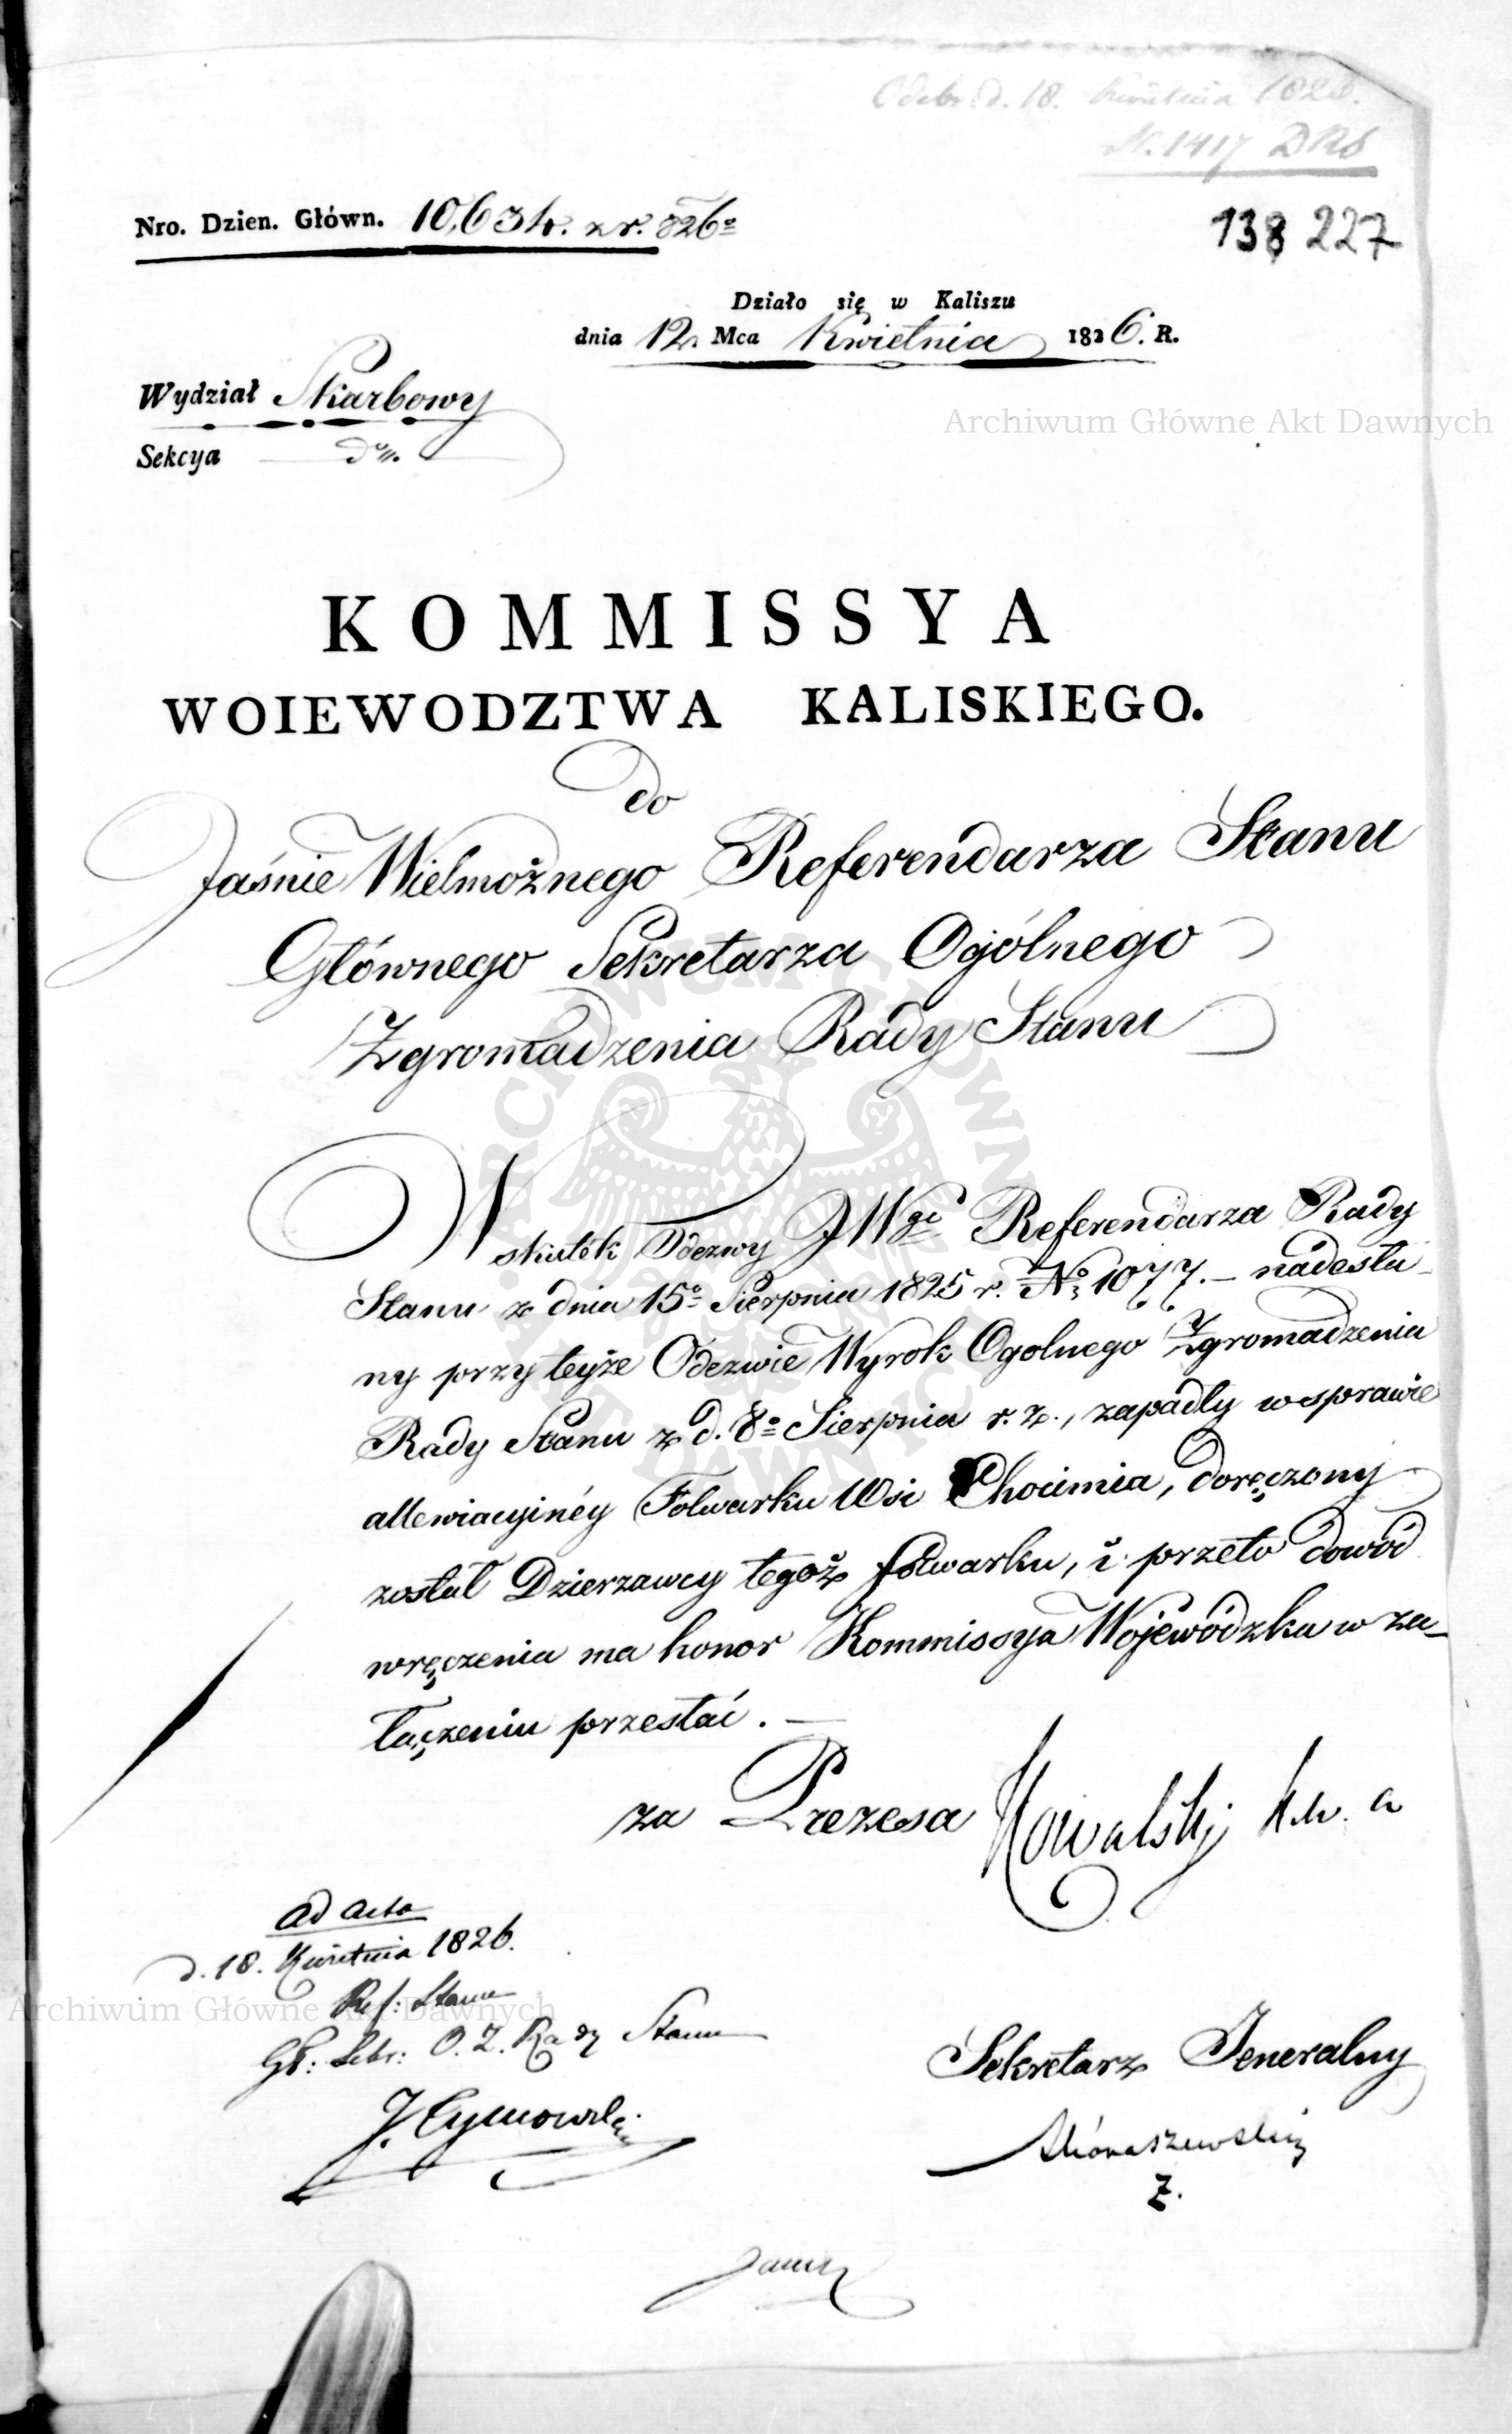 Odebr: d. 18. Kwietnia 1826.
N. 1417 DRS
Nro. Dzien. Główn. 10,634. z r. 826º
138 227
Działo się w Kaliszu
dnia 12 Mca Kwietnia 1826. R.
Wydział Skarbowy
Archiwum Główne Akt Dawnych
Sekcya dº
KOMMISSYA
WOIEWODZTWA KALISKIEGO.
do
Jaśnie Wielmożnego Referendarza Stanu
Głównego Sekretarza Ogólnego
Zgromadzenia Rady Stanu
Wskutek Odezwy JWgo Referendarza Rady
Stanu z dnia 15º Sierpnia 1825 r. Nº 1077. – nadesła-
ny przy teyże Odezwie Wyrok Ogolnego Zgromadzenia
Rady Stanu z d. 8º Sierpnia r. z., zapadły w sprawie
allewiacyinéy Folwarku Wsi Chocimia, doręczony
został Dzierzawcy tegoż folwarku, i przeto dowód
wręczenia ma honor Kommissya Wojewódzka w za-
łączeniu przesłać. —
za Prezesa Kowalski
ad acta
d. 18. Kwietnia 1826.
Ref: Stanu
Archiwum Główne Akt Dawnych
Gł: Sekr: O. Z. Rady Stanu
Sekretarz Jeneralny
J. Tymowski
Z.
ARCHIWUM GŁÓWNE AKT DAWNYCH